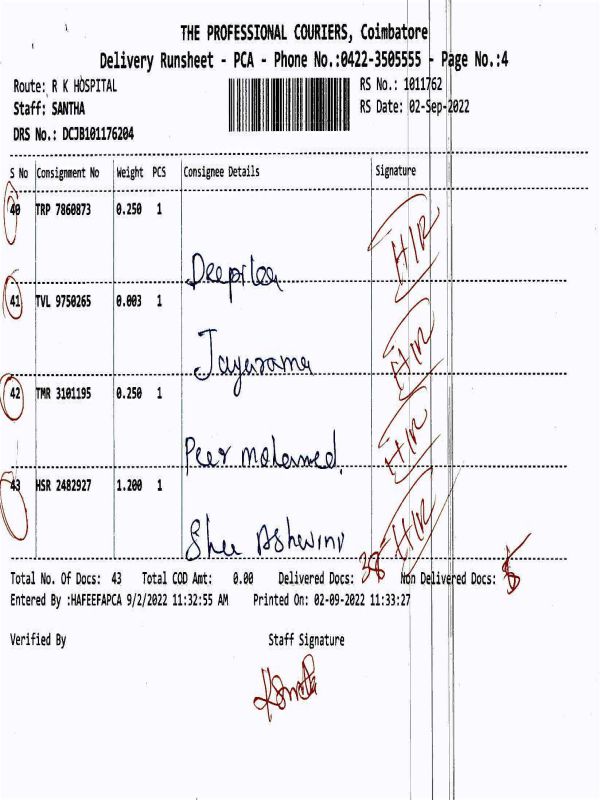 THE PROFESSIONAL COURIERS, Coimbatore
Delivery Runsheet - PCA - Phone No.:0422-3505555 - Page No.:4
Route: R K HOSPITAL RS No.: 1011762
Staff: SANTHA RS Date: 02-Sep-2022
DRS No.: DCJB101176204
S No Consignment No Weight PCS Consignee Details Signature
40 TRP 7860873 0.250 1 H/R
Deepika
41 TVL 9750265 0.003 1 H/R
Jayarama
42 TMR 3101195 0.250 1 H/R
Peer mohamed.
43 HSR 2482927 1.200 1 H/R
Shee Ashwini
Total No. Of Docs: 43 Total COD Amt: 0.00 Delivered Docs: 38 Non Delivered Docs: 5
Entered By :HAFEEFAPCA 9/2/2022 11:32:55 AM Printed On: 02-09-2022 11:33:27
Verified By Staff Signature